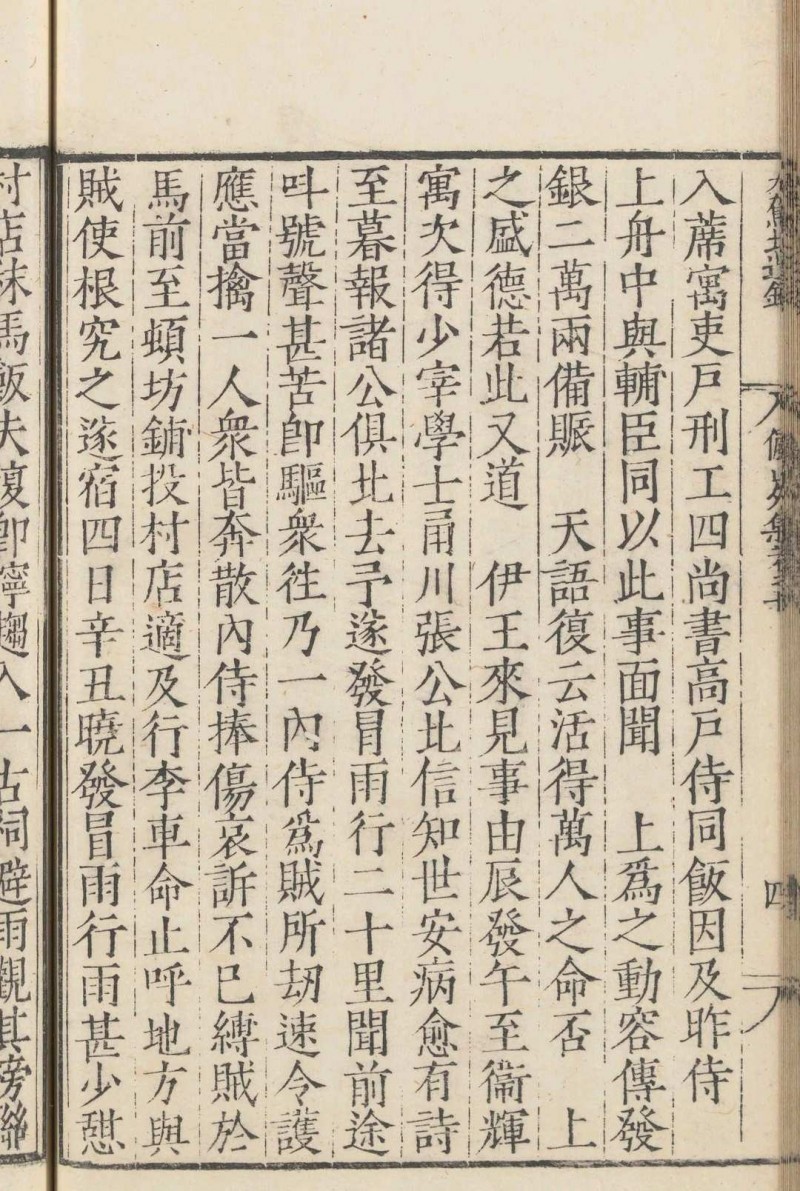 入蓆寓吏戸刑工四尚書高戸侍同飯因及昨侍
上舟中與輔臣同以此事面聞　上爲之動容傳發
銀二萬兩備賑　天語復云活得萬人之命否　上
之盛德若此又道　伊王來見事由辰發午至衞輝
寓次得少宰學士甬川張公北信知世安病愈有詩
至暮報諸公俱北去予遂發冒雨行二十里聞前途
呌號聲甚苦卽驅衆徃乃一內侍爲賊所刼速令護
應當擒一人衆皆奔散內侍捧傷哀訴不已縛賊於
馬前至頓坊鋪投村店適及行李車命止呼地方與
賊使根究之遂宿四日辛丑曉發冒雨行雨甚少憇
村店秣馬飯夫復卽濘趨入一古祠避雨觀其旁聯